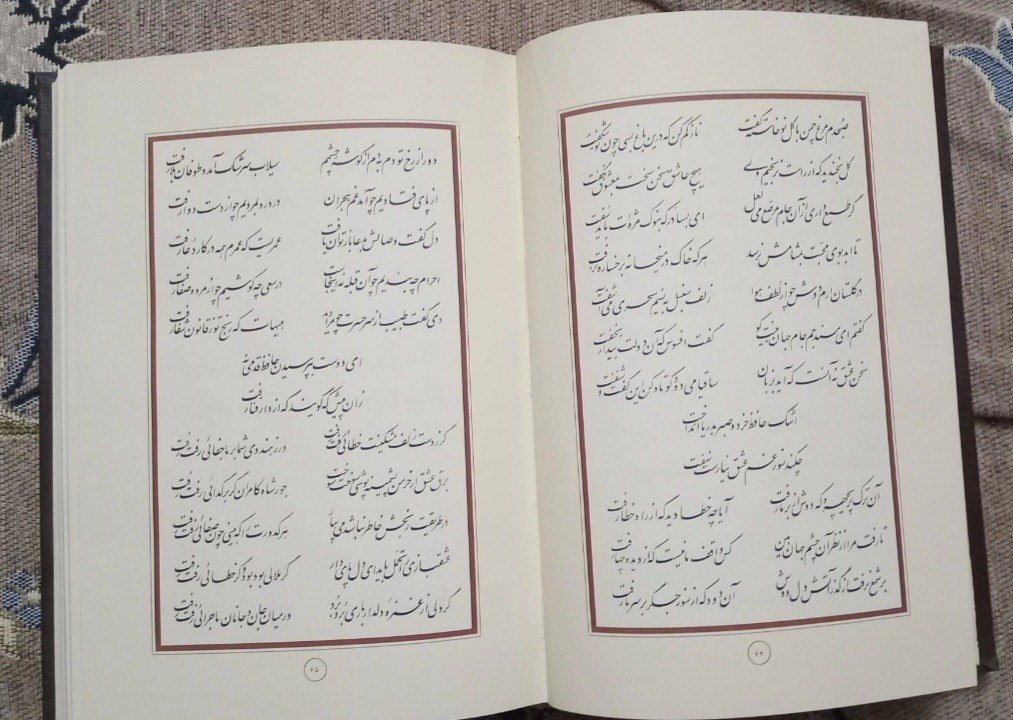 صبحدم مرغ چمن با گل نوخاسته گفت ناز کم کن که درین باغ بسی چون تو شکفت
گل بخندید که از راست نرنجیم ولی هیچ عاشق سخن سخت بمعشوق نگفت
گر طمع داری از آن جام مرصع می لعل ای بسا در که بنوک مژه‌ات باید سفت
تا ابد بوی محبت بمشامش نرسد هر که خاک در میخانه برخساره نرفت
در گلستان ارم دوش چو از لطف هوا زلف سنبل به نسیم سحری می‌آشفت
گفتم ای مسند جم جام جهان بینت کو گفت افسوس که آن دولت بیدار بخفت
سخن عشق نه آنست که آید بزبان ساقیا می ده و کوتاه کن این گفت و شنفت
اشک حافظ خرد و صبر بدریا انداخت
چکند سوز غم عشق نیارست نهفت
آن ترک پریچهره که دوش از بر ما رفت آیا چه خطا دید که از راه خطا رفت
تا رفت مرا از نظر آن چشم جهان بین کس واقف ما نیست که از دیده چها رفت
بر شمع نرفت از گذر آتش دل دوش آن دود که از سوز جگر بر سر ما رفت
۶۴
دور از رخ تو دم بدم از گوشه چشمم سیلاب سرشک آمد و طوفان بلا رفت
از پای فتادیم چو آمد غم هجران در درد بمردیم چو از دست دوا رفت
دل گفت وصالش بدعا باز توان یافت عمریست که عمرم همه در کار دعا رفت
احرام چه بندیم چو آن قبله نه اینجاست در سعی چه کوشیم چو از مروه صفا رفت
دی گفت طبیب از سر حسرت چو مرا دید هیهات که رنج تو ز قانون شفا رفت
ای دوست بپرسیدن حافظ قدمی نه
زان پیش که گویند که از دار فنا رفت
گر ز دست زلف مشکینت خطائی رفت رفت ور ز هندوی شما بر ما جفائی رفت رفت
برق عشق ار خرمن پشمینه پوشی سوخت سوخت جور شاه کامران گر بر گدائی رفت رفت
در طریقت رنجش خاطر نباشد می بیار هر کدورت را که بینی چون صفائی رفت رفت
عشقبازی را تحمل باید ای دل پای دار گر ملالی بود بود و گر خطائی رفت رفت
گر دلی از غمزه دلدار باری برد برد ور میان جان و جانان ماجرائی رفت رفت
۶۵